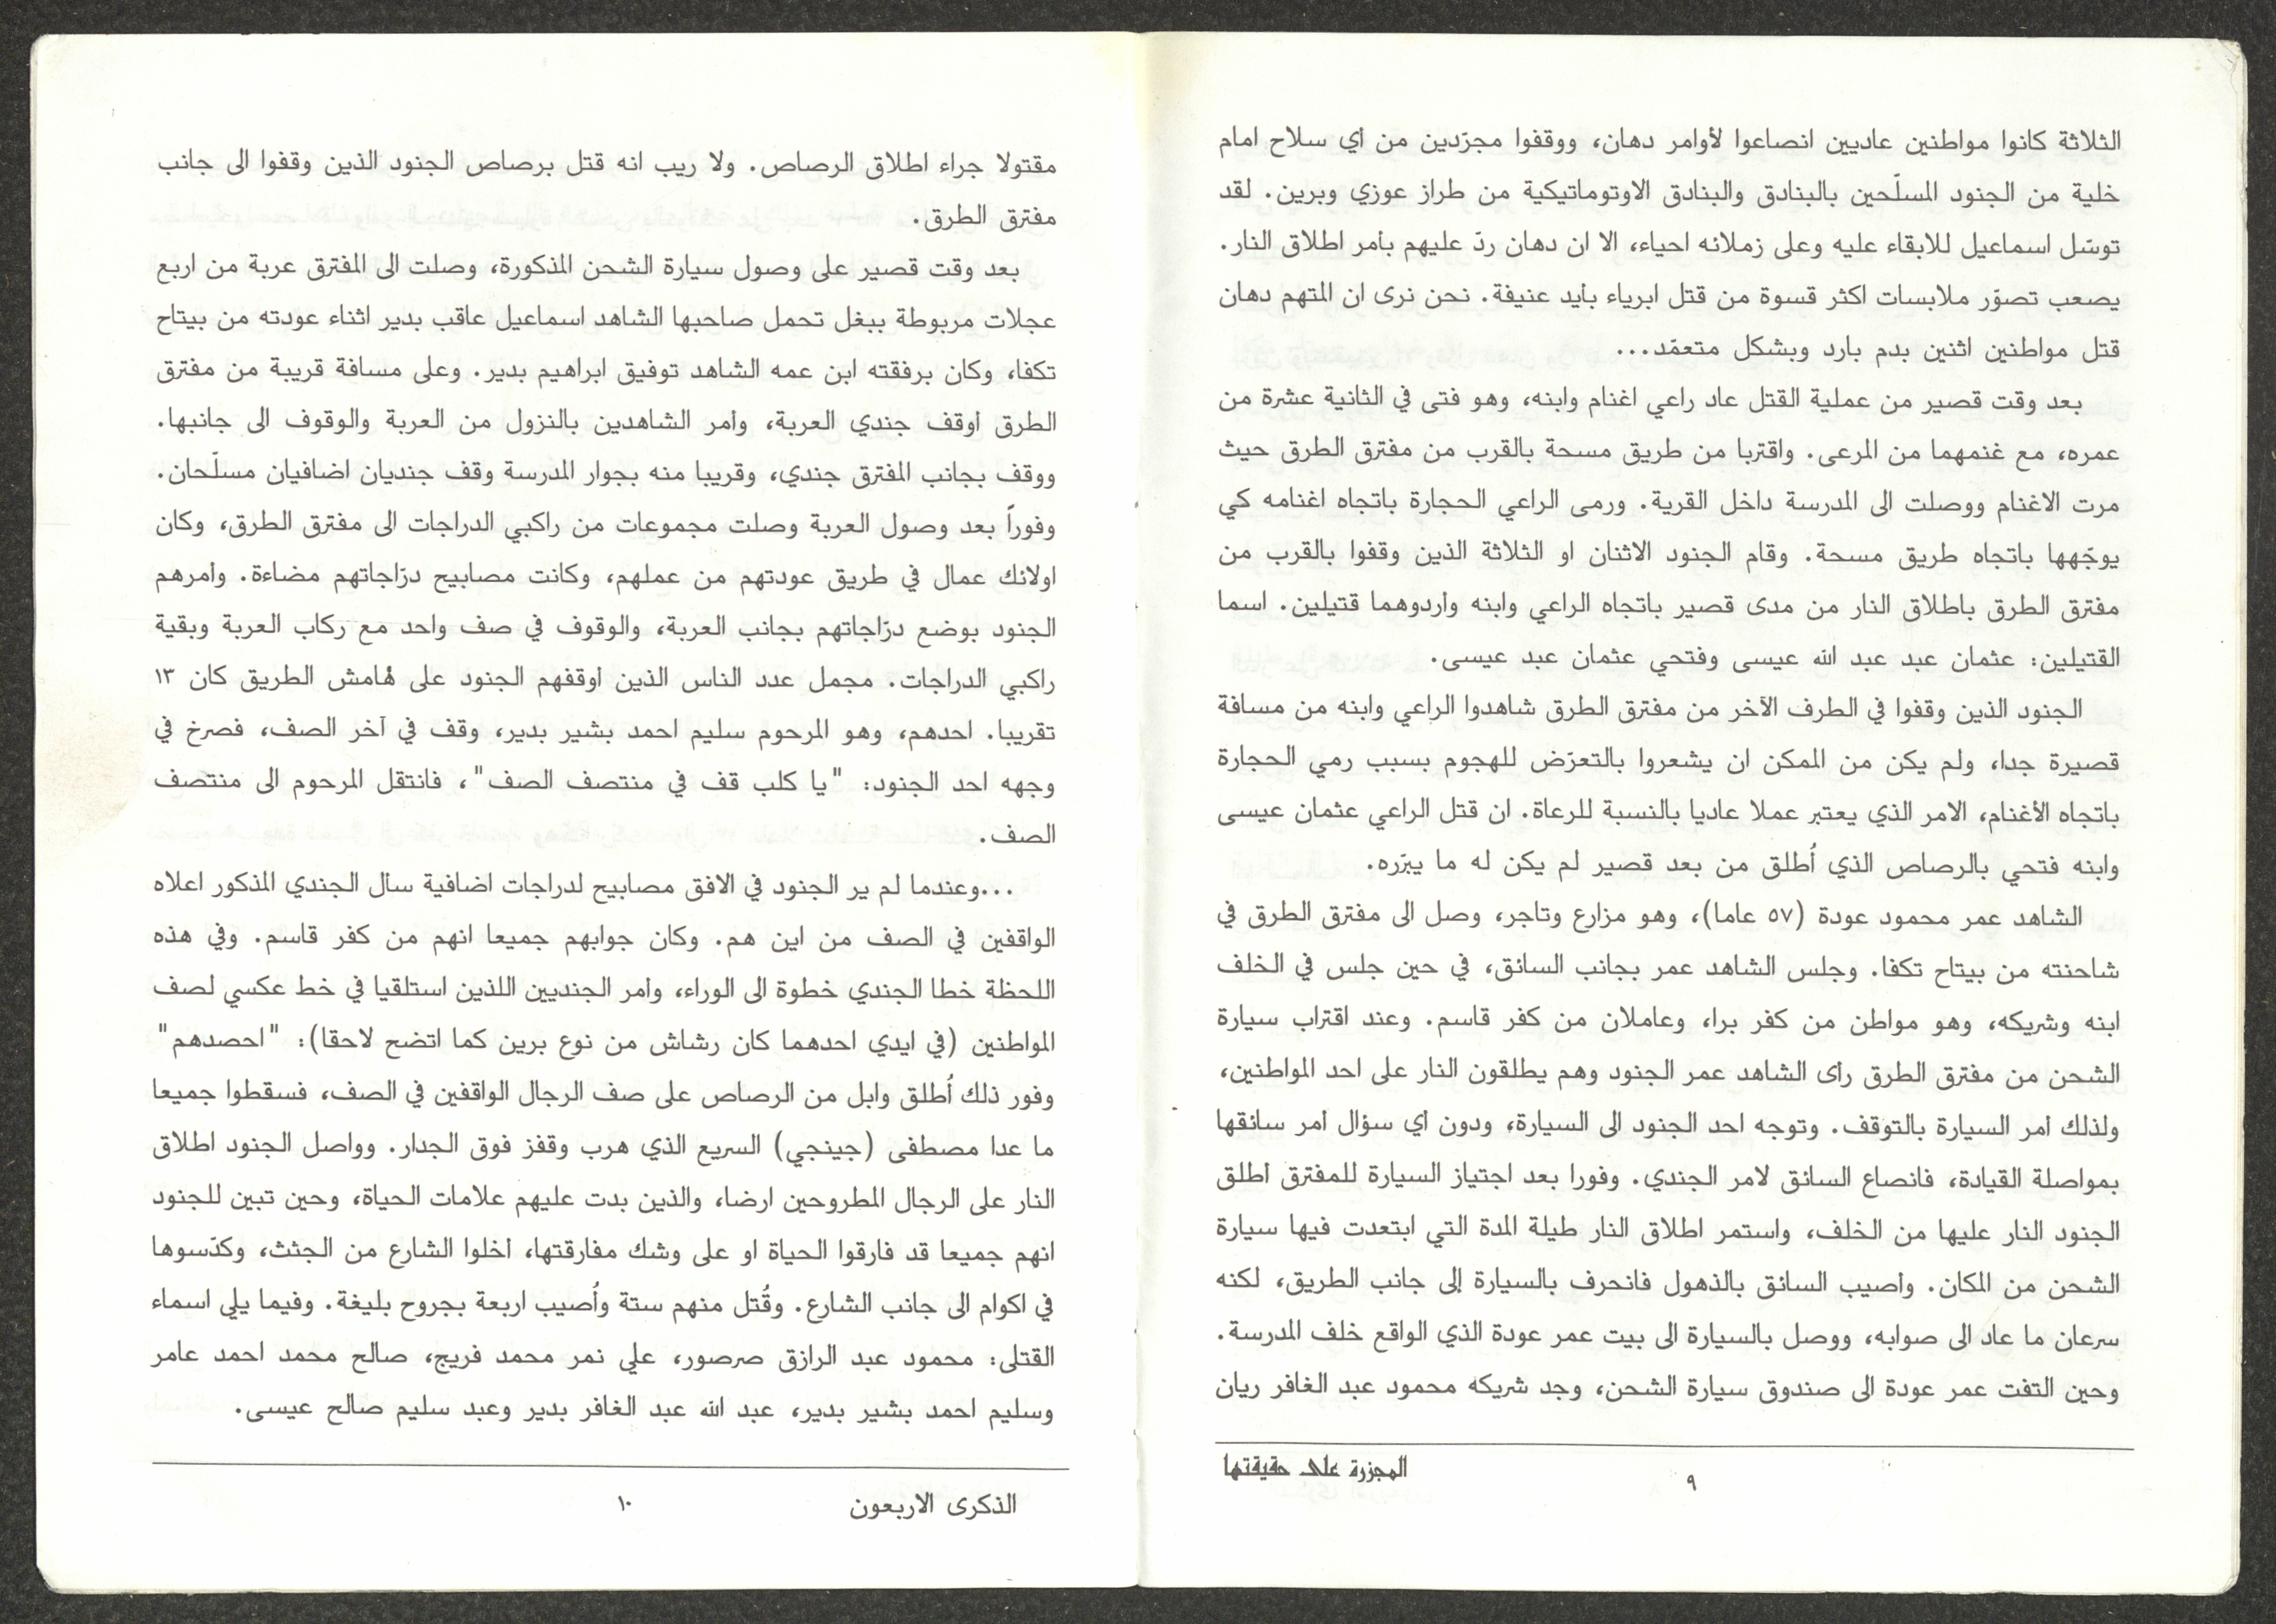 الثلاثة كانوا مواطنين عاديين انصاعوا لأوامر دهان، ووقفوا مجرّدين من أي سلاح امام
خلية من الجنود المسلّحين بالبنادق والبنادق الاوتوماتيكية من طراز عوزي وبرين. لقد
توسّل اسماعيل للابقاء عليه وعلى زملائه احياء، الا ان دهان ردّ عليهم بأمر اطلاق النار.
يصعب تصوّر ملابسات اكثر قسوة من قتل ابرياء بأيد عنيفة. نحن نرى ان المتهم دهان
قتل مواطنين اثنين بدم بارد وبشكل متعمّد...
بعد وقت قصير من عملية القتل عاد راعي اغنام وابنه، وهو فتى في الثانية عشرة من
عمره، مع غنمهما من المرعى. واقتربا من طريق مسحة بالقرب من مفترق الطرق حيث
مرت الاغنام ووصلت الى المدرسة داخل القرية. ورمى الراعي الحجارة باتجاه اغنامه كي
يوجّهها باتجاه طريق مسحة. وقام الجنود الاثنان او الثلاثة الذين وقفوا بالقرب من
مفترق الطرق باطلاق النار من مدى قصير باتجاه الراعي وابنه وأردوهما قتيلين. اسما
القتيلين: عثمان عبد عبد الله عيسى وفتحي عثمان عبد عيسى.
الجنود الذين وقفوا في الطرف الآخر من مفترق الطرق شاهدوا الراعي وابنه من مسافة
قصيرة جدا، ولم يكن من الممكن ان يشعروا بالتعرّض للهجوم بسبب رمي الحجارة
باتجاه الأغنام، الامر الذي يعتبر عملا عاديا بالنسبة للرعاة. ان قتل الراعي عثمان عيسى
وابنه فتحي بالرصاص الذي أُطلق من بعد قصير لم يكن له ما يبرّره.
الشاهد عمر محمود عودة (٥٧ عاما)، وهو مزارع وتاجر، وصل الى مفترق الطرق في
شاحنته من بيتاح تكفا. وجلس الشاهد عمر بجانب السائق، في حين جلس في الخلف
ابنه وشريكه، وهو مواطن من كفر برا، وعاملان من كفر قاسم. وعند اقتراب سيارة
الشحن من مفترق الطرق رأى الشاهد عمر الجنود وهم يطلقون النار على احد المواطنين،
ولذلك أمر السيارة بالتوقف. وتوجه احد الجنود الى السيارة، ودون اي سؤال أمر سائقها
بمواصلة القيادة، فانصاع السائق لامر الجندي. وفورا بعد اجتياز السيارة للمفترق أطلق
الجنود النار عليها من الخلف، واستمر اطلاق النار طيلة المدة التي ابتعدت فيها سيارة
الشحن من المكان. وأصيب السائق بالذهول فانحرف بالسيارة إلى جانب الطريق، لكنه
سرعان ما عاد الى صوابه، ووصل بالسيارة الى بيت عمر عودة الذي الواقع خلف المدرسة.
وحين التفت عمر عودة الى صندوق سيارة الشحن، وجد شريكه محمود عبد الغافر ريان
المجزرة على حقيقتها
٩
مقتولا جراء اطلاق الرصاص. ولا ريب انه قتل برصاص الجنود الذين وقفوا الى جانب
مفترق الطرق.
بعد وقت قصير على وصول سيارة الشحن المذكورة، وصلت الى المفترق عربة من اربع
عجلات مربوطة ببغل تحمل صاحبها الشاهد اسماعيل عاقب بدير اثناء عودته من بيتاح
تكفا، وكان برفقته ابن عمه الشاهد توفيق ابراهيم بدير. وعلى مسافة قريبة من مفترق
الطرق أوقف جندي العربة، وأمر الشاهدين بالنزول من العربة والوقوف الى جانبها.
ووقف بجانب المفترق جندي، وقريبا منه بجوار المدرسة وقف جنديان اضافيان مسلّحان.
وفوراً بعد وصول العربة وصلت مجموعات من راكبي الدراجات الى مفترق الطرق، وكان
اولائك عمال في طريق عودتهم من عملهم، وكانت مصابيح درّاجاتهم مضاءة. وأمرهم
الجنود بوضع درّاجاتهم بجانب العربة، والوقوف في صف واحد مع ركاب العربة وبقية
راكبي الدراجات. مجمل عدد الناس الذين أوقفهم الجنود على هامش الطريق كان ١٣
تقريبا. احدهم، وهو المرحوم سليم احمد بشير بدير، وقف في آخر الصف، فصرخ في
وجهه احد الجنود: "يا كلب قف في منتصف الصف"، فانتقل المرحوم الى منتصف
الصف.
...وعندما لم ير الجنود في الافق مصابيح لدراجات اضافية سأل الجندي المذكور اعلاه
الواقفين في الصف من اين هم. وكان جوابهم جميعا انهم من كفر قاسم. وفي هذه
اللحظة خطا الجندي خطوة الى الوراء، وأمر الجنديين اللذين استلقيا في خط عكسي لصف
المواطنين (في ايدي احدهما كان رشاش من نوع برين كما اتضح لاحقا): "احصدهم"
وفور ذلك أُطلق وابل من الرصاص على صف الرجال الواقفين في الصف، فسقطوا جميعا
ما عدا مصطفى (جينجي) السريع الذي هرب وقفز فوق الجدار. وواصل الجنود اطلاق
النار على الرجال المطروحين ارضا، والذين بدت عليهم علامات الحياة، وحين تبين للجنود
انهم جميعا قد فارقوا الحياة او على وشك مفارقتها، أخلوا الشارع من الجثث، وكدّسوها
في اكوام الى جانب الشارع. وقُتل منهم ستة وأُصيب اربعة بجروح بليغة. وفيما يلي اسماء
القتلى: محمود عبد الرازق صرصور، علي نمر محمد فريج، صالح محمد احمد عامر
وسليم احمد بشير بدير، عبد الله عبد الغافر بدير وعبد سليم صالح عيسى.
الذكرى الاربعون
١٠